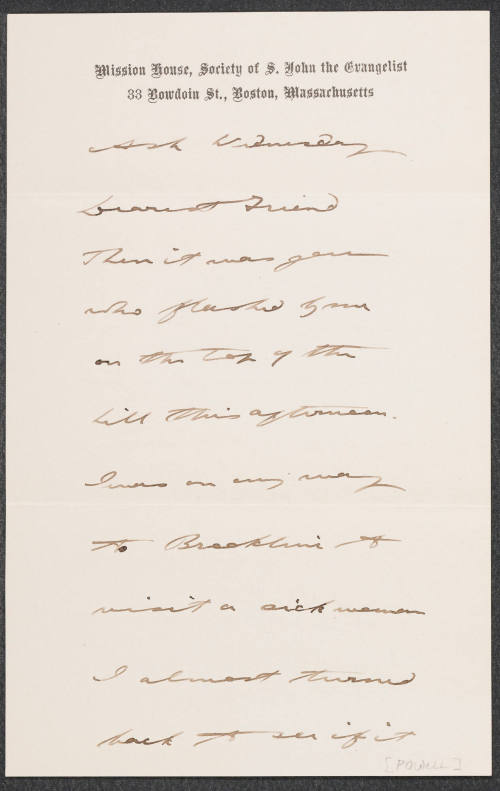 Mission House, Society of S. John the Evangelist
33 Bowdoin St., Boston, Massachusetts
Ash Wednesday
Dearest Friend
Then it was you
who flashed by me
on the top of the
hill this afternoon.
I was on my way
to Brookline to
visit a sick woman
I almost turned
back to see if it
[POWELL]